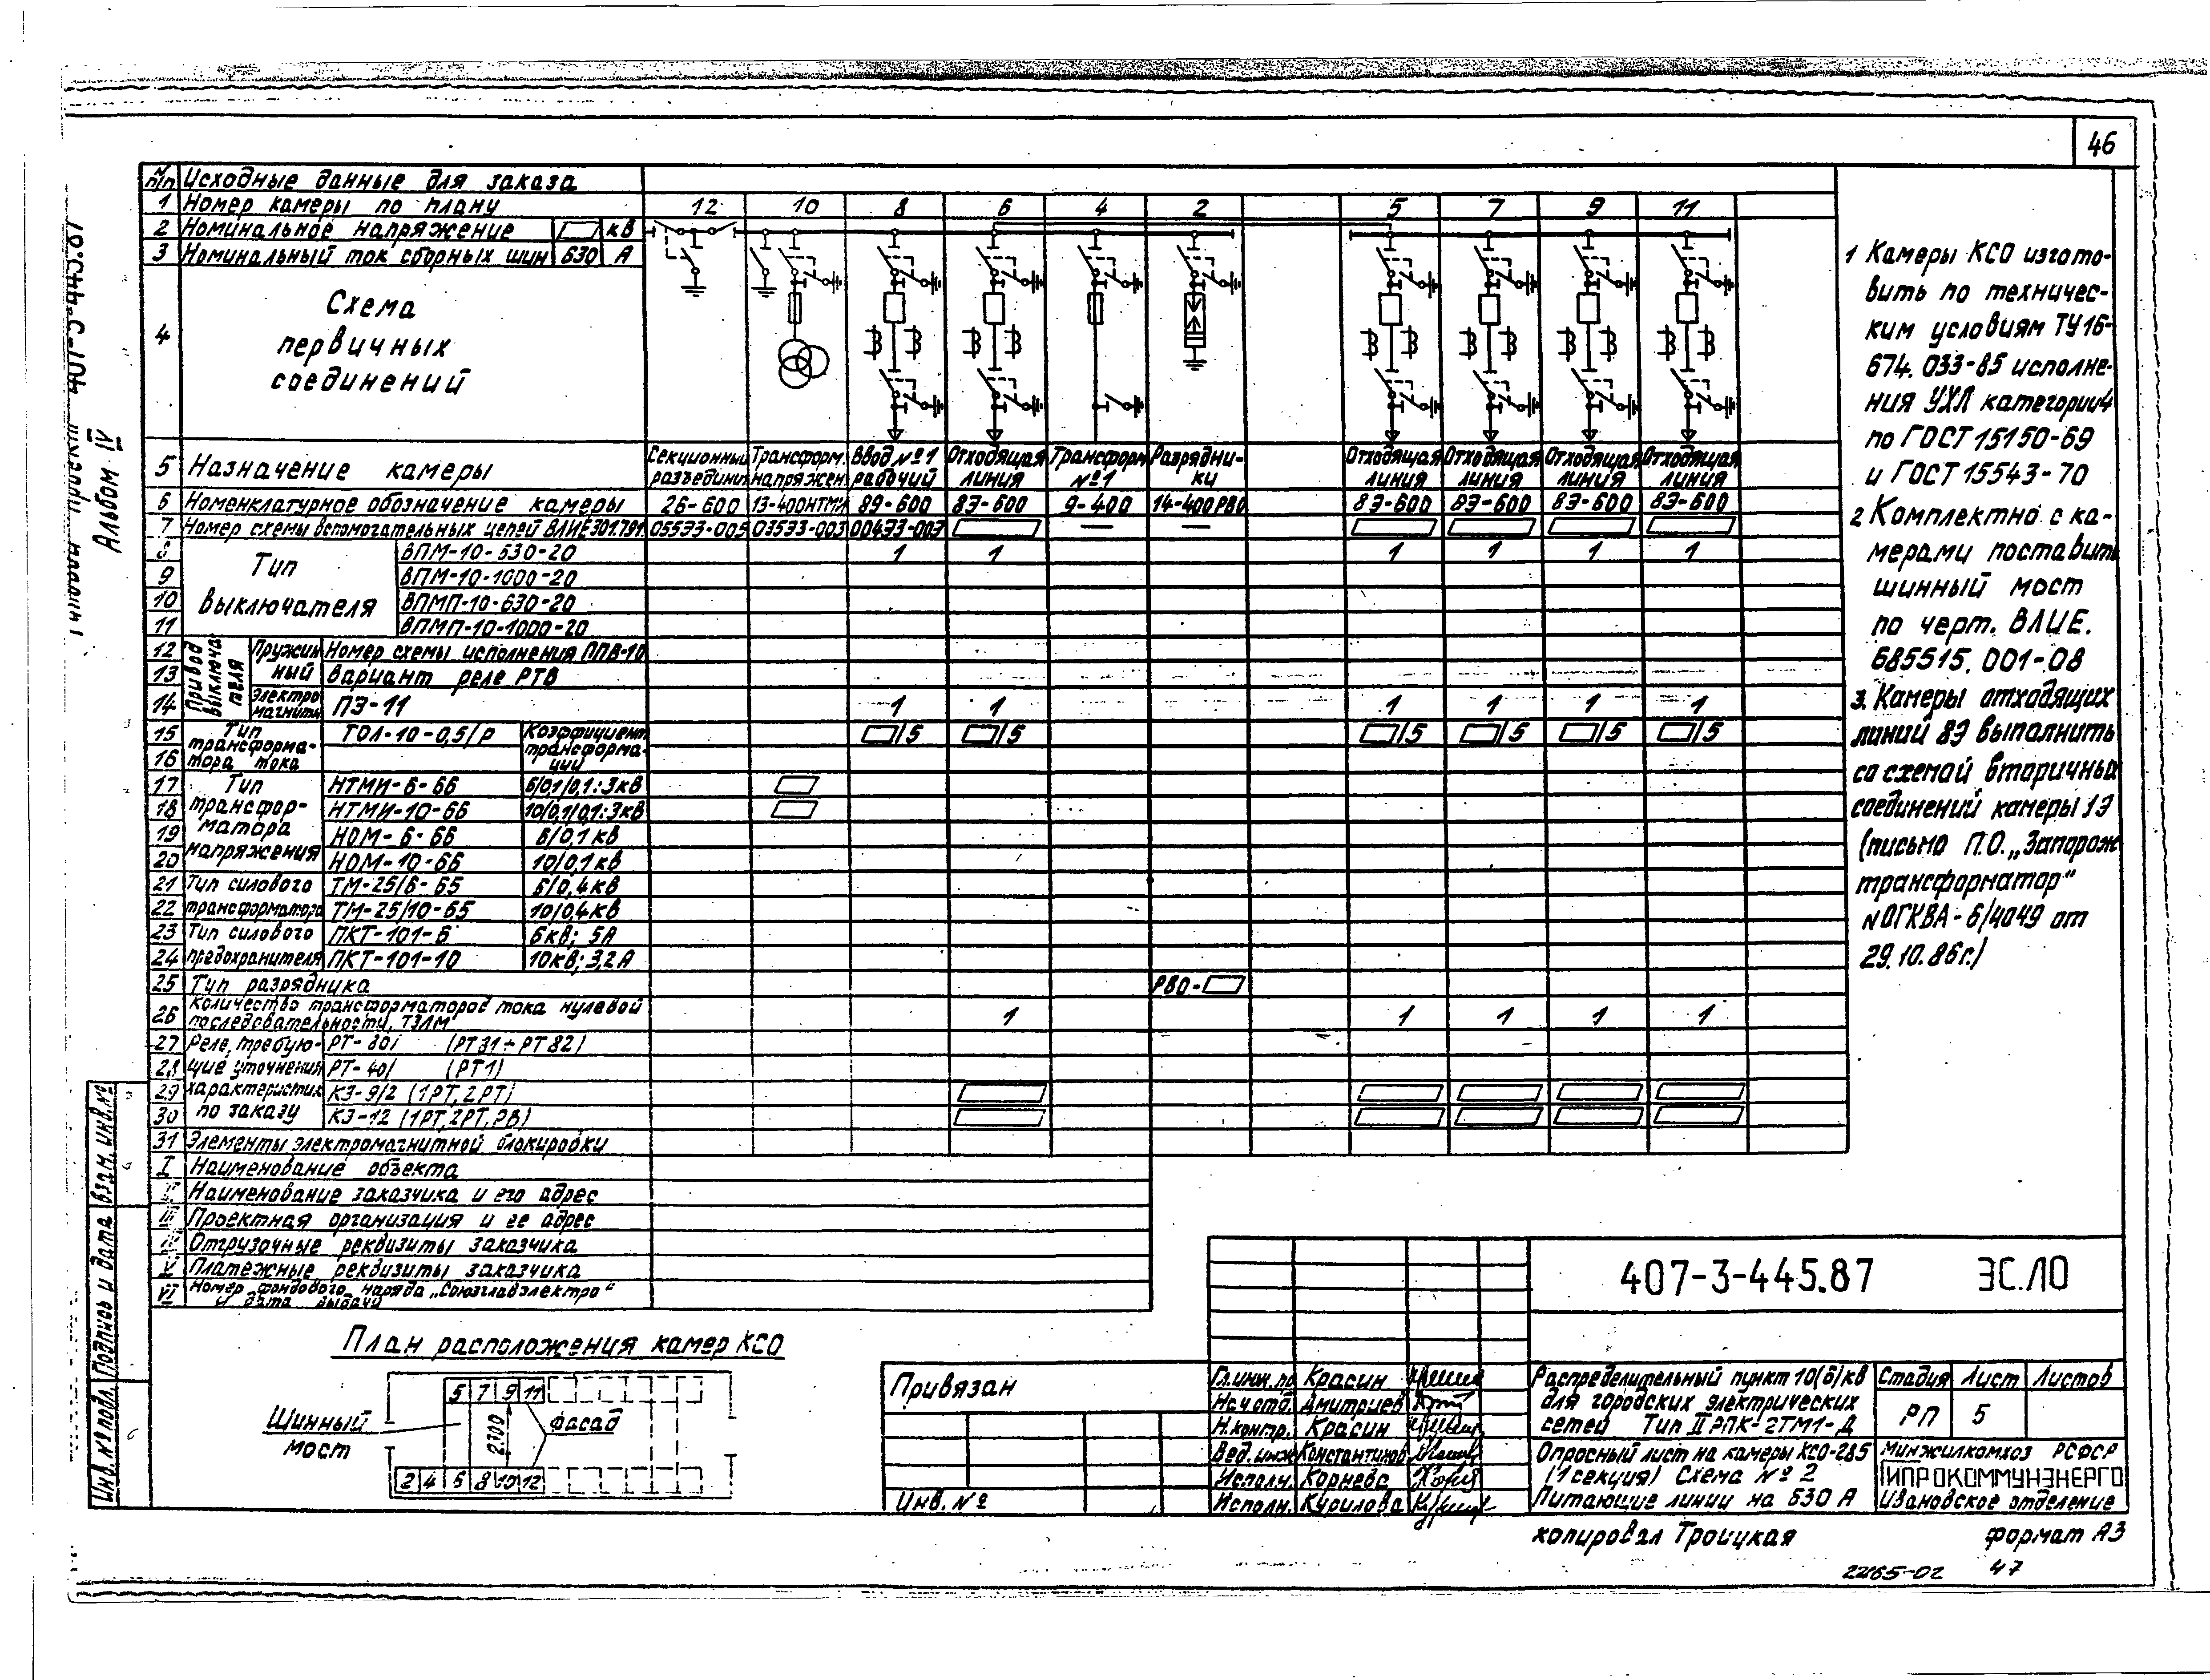 46
Альбом IV
N п/п Исходные данные для заказа
1 Номер камеры по плану 12 10 8 6 4 2 5 7 9 11
2 Номинальное напряжение кв
3 Номинальный ток сборных шин 630 А
4 Схема
первичных
соединений
5 Назначение камеры
Секционный Трансформ. Ввод №1 Отходящая Трансформ Разрядни- Отходящая Отходящая Отходящая Отходящая
разъедини напряжен рабочий линия №1 ки линия линия линия линия
6 Номенклатурное обозначение камеры 26-600 13-400НТМИ 8Э-600 8Э-600 9-400 14-400РВО 8Э-600 8Э-600 8Э-600 8Э-600
7 Номер схемы вспомогательных цепей ВЛИЕ301.791 05533-005 03533-003 00433-003 — —
8 Тип выключателя ВПМ-10-630-20 1 1 1 1 1 1
9 ВПМ-10-1000-20
10 ВПМП-10-630-20
11 ВПМП-10-1000-20
Привод выключателя
12 Пружин Номер схемы исполнения ППВ-10
13 ный Вариант реле РТВ
14 Электро магнитн ПЭ-11 1 1 1 1 1 1
15 Тип ТОЛ-10-0,5/Р Коэффициент /5 /5 /5 /5 /5 /5
трансформа- трансформа-
16 тора тока ции
17 Тип НТМИ-6-66 6/0,1/0,1:3кв
18 трансфор- НТМИ-10-66 10/0,1/0,1:3кв
19 матора НОМ-6-66 6/0,1кв
20 напряжения НОМ-10-66 10/0,1кв
21 Тип силового ТМ-25/6-65 6/0,4кв
22 трансформатора ТМ-25/10-65 10/0,4кв
23 Тип силового ПКТ-101-6 6кв; 5А
24 предохранителя ПКТ-101-10 10кв; 3,2А
25 Тип разрядника РВО-
26 Количество трансформаторов тока нулевой
последовательности, ТЗЛМ 1 1 1 1 1
27 Реле, требую- РТ-80/ (РТ81÷РТ82)
28 щие уточнения РТ-40/ (РТ1)
29 характеристик КЗ-9/2 (1РТ,2РТ)
30 по заказу КЗ-12 (1РТ,2РТ,РВ)
31 Элементы электромагнитной блокировки
I Наименование объекта
II Наименование заказчика и его адрес
III Проектная организация и ее адрес
IV Отгрузочные реквизиты заказчика
V Платежные реквизиты заказчика
VI Номер фондового наряда „Союзглавэлектро"
и дата выдачи
1 Камеры КСО изгото-
вить по техничес-
ким условиям ТУ16-
674.033-85 исполне-
ния УХЛ категории4
по ГОСТ 15150-69
и ГОСТ 15543-70
2 Комплектно с ка-
мерами поставить
шинный мост
по черт. ВЛИЕ.
685515.001-08
3. Камеры отходящих
линий 8Э выполнить
со схемой вторичных
соединений камеры 1Э
(письмо П.О. „Запорож
трансформатор"
№ОГКВА-6/4049 от
29.10.86г.)
План расположения камер КСО
Шинный
мост
5 7 9 11
2700
фасад
2 4 6 8 10 12
Инв.№ подл. Подпись и дата Взам. инв.№
Привязан
Инв. №
407-3-445.87 ЭС.ЛО
Гл.инж.по Красин
Нач отд. Дмитриев
Н.контр. Красин
Вед. инж Константинов
Исполн. Корнева
Исполн. Курилова
Распределительный пункт 10(6)кв
для городских электрических
сетей Тип II РПК-2ТМ1-Д
Стадия Лист Листов
РП 5
Опросный лист на камеры КСО-285
(1 секция) Схема №2
Питающие линии на 630 А
Минжилкомхоз РСФСР
ГИПРОКОММУНЭНЕРГО
Ивановское отделение
копировал Троицкая формат А3
47